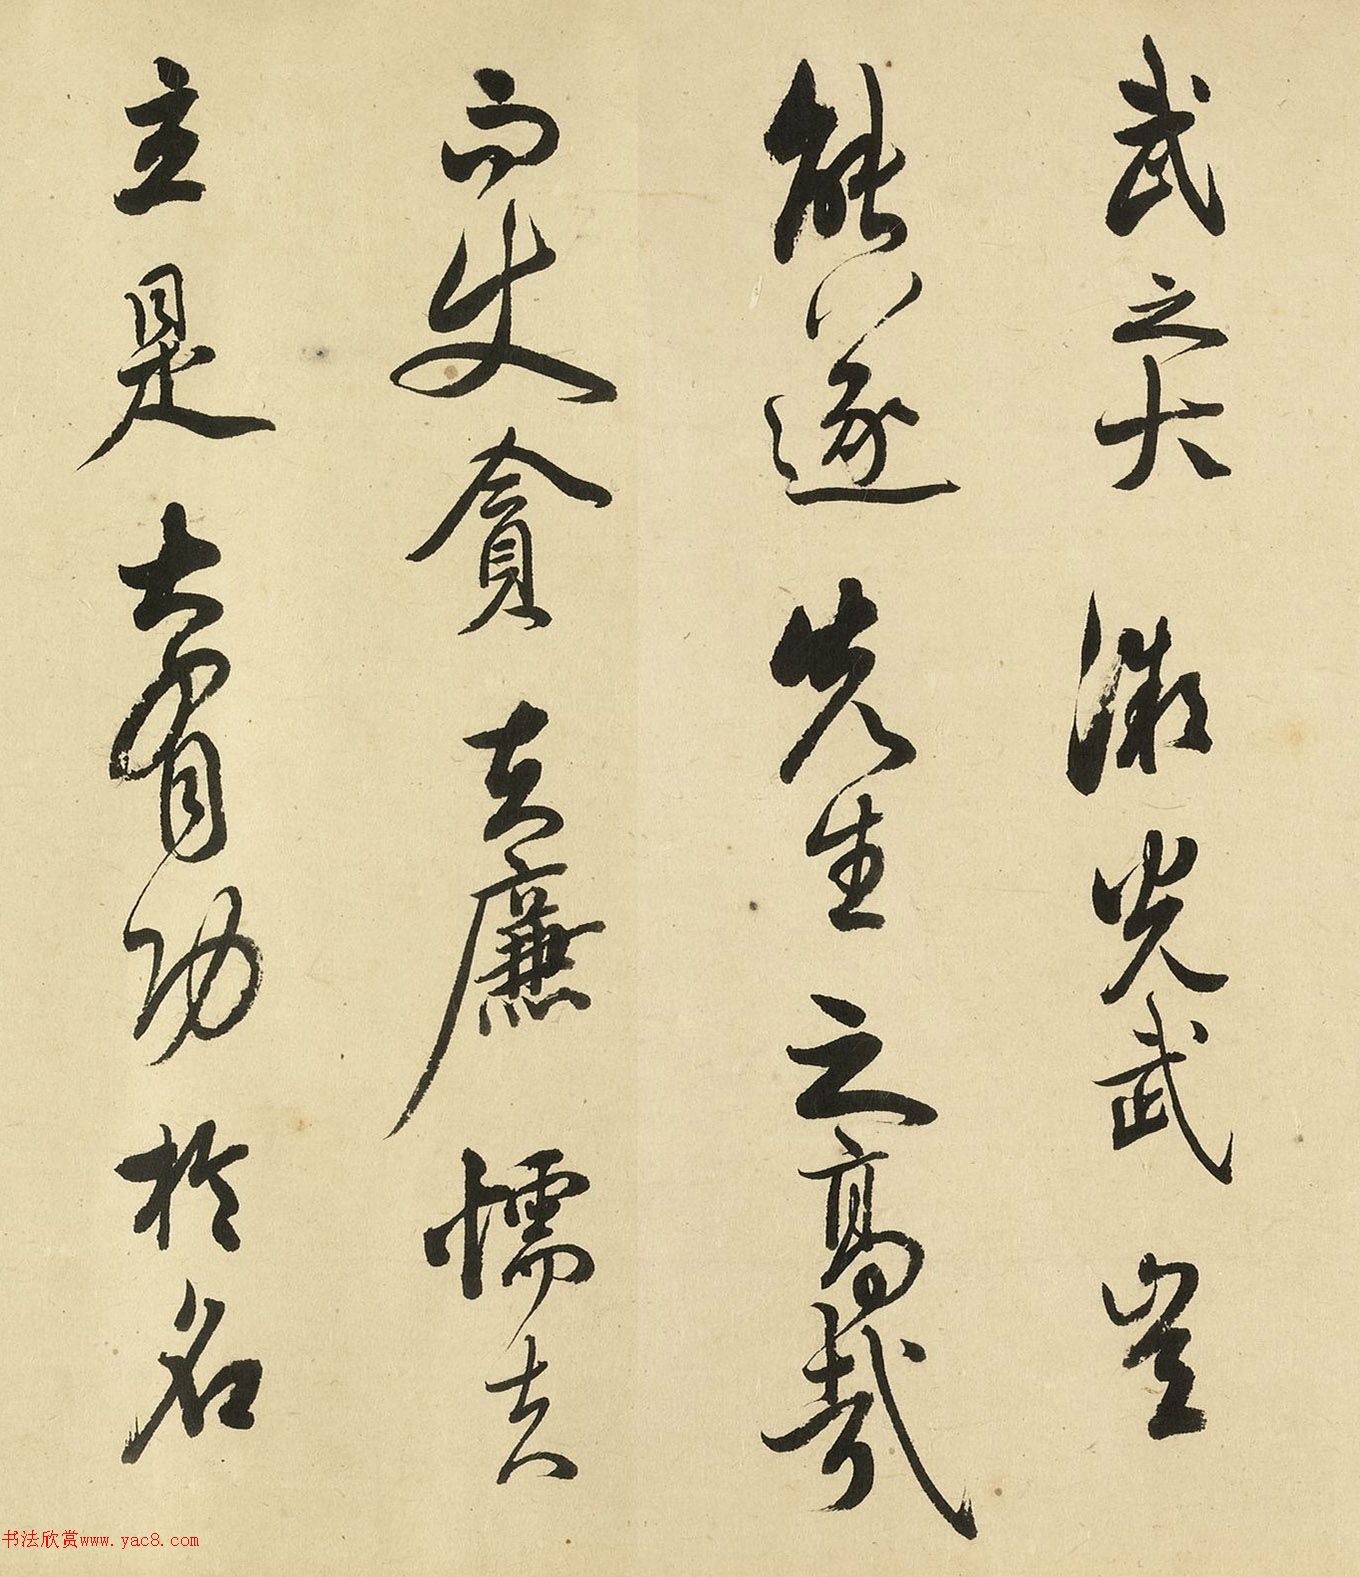 武之大微光武豈
能遂先生之高哉
而使貪夫廉懦夫
立是大有功於名
书法欣赏www.yac8.com